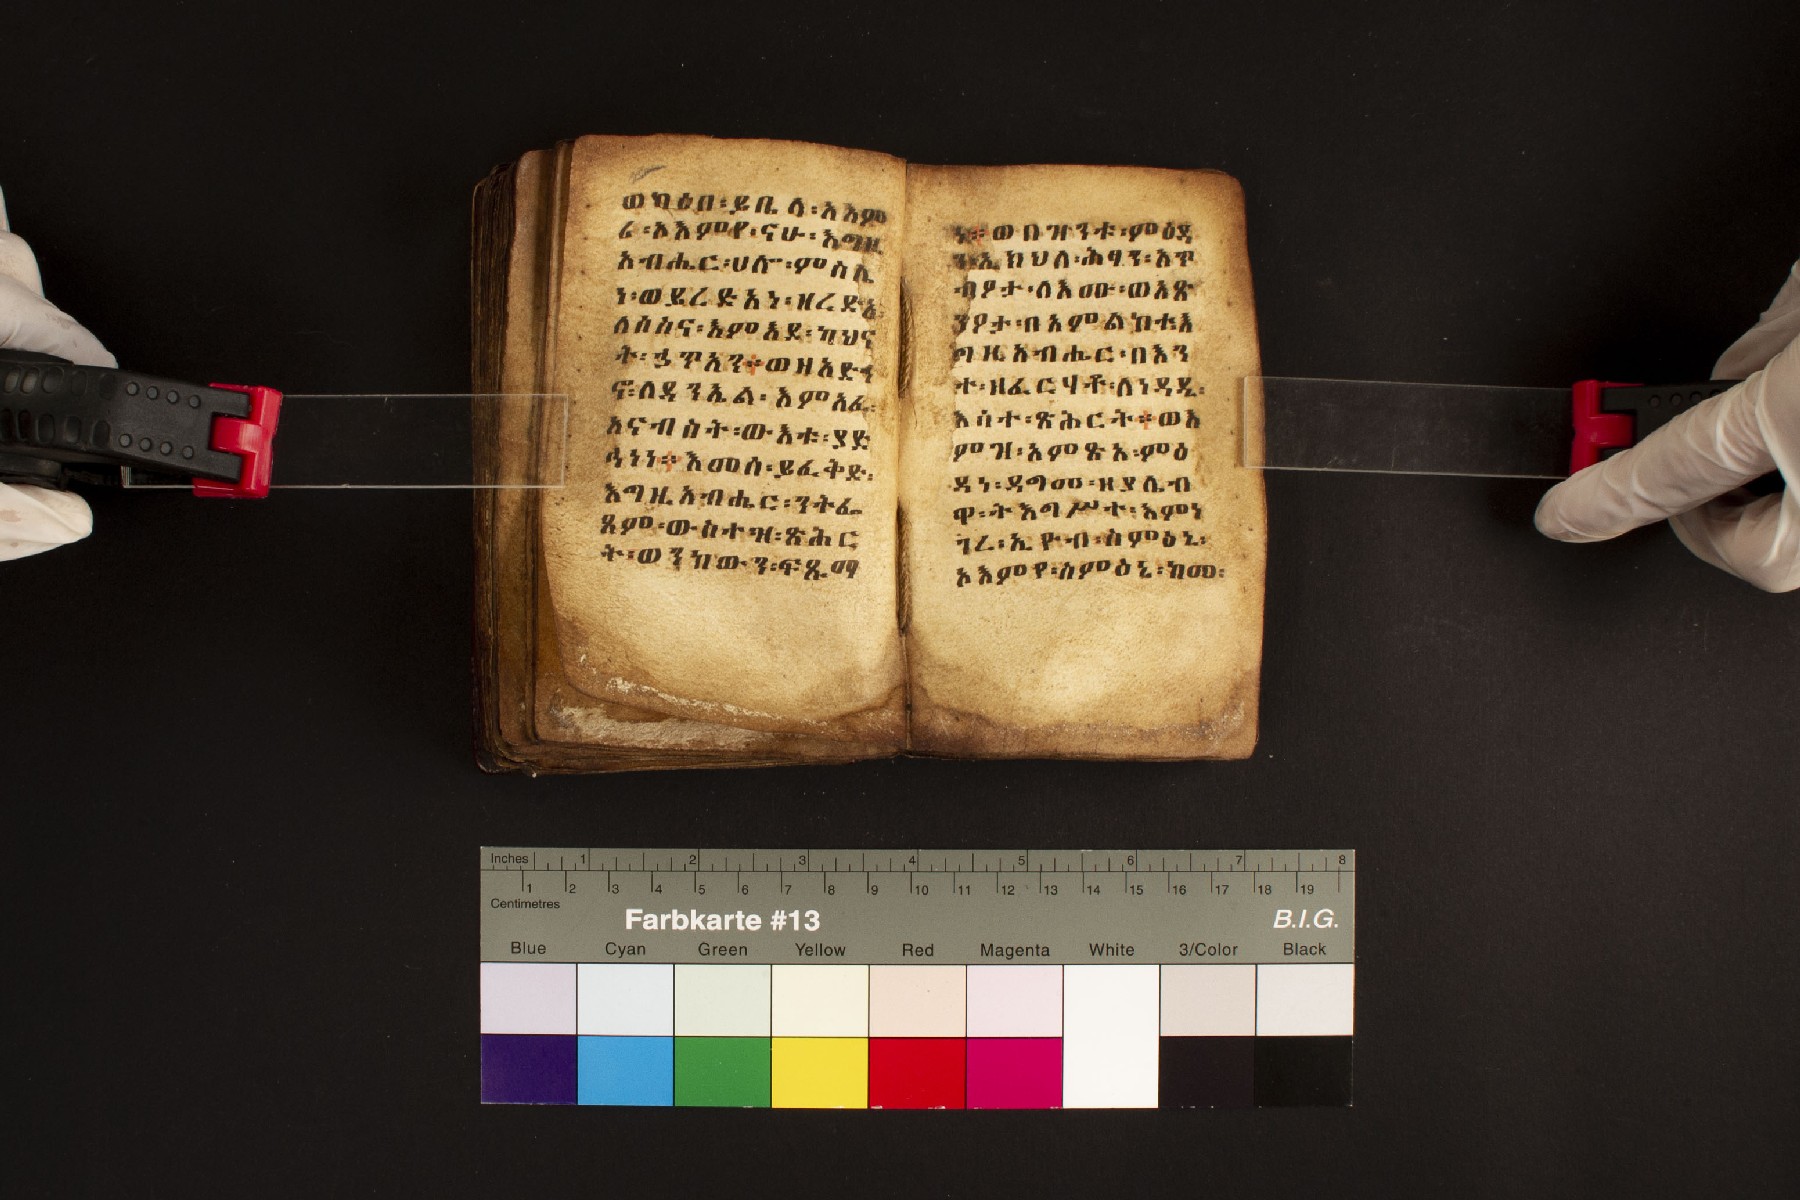 ወካዕበ፡ይቤላ፡አአም
ረ፡ኦእምየ፡ናሁ፡እግዚ
አብሔር፡ሀሎ፡ምስሌ
ነ፡ወይረድአነ፡ዘረድአ፡
ለሶስና፡እምእደ፡ካህና
ት፡ኃጥአን፨ወዘአድኀ
ኖ፡ለዳንኤል፡እምአፈ፡
አናብስት፡ውእቱ፡ያድ
ኅነነ፨እመሰ፡ይፈቅድ፡
እግዚአብሔር፡ንትፌ
ጸም፡ውስተ፡ዝ፡ጽሕር
ት፡ወንከውን፡ፍጺማ
ነ፨ወበዝንቱ፡ምዕዳ
ን፡ኢክህለ፡ሕፃን፡አጥ
ብዖታ፡ለእሙ፡ወአጽ
ንዖታ፡በአምልኮቱ፡እ
ግዚአብሔር፡በእን
ተ፡ዘፈርሃቶ፡ለነዳዷ፡
እሳተ፡ጽሕርት፨ወእ
ምዝ፡አምጽአ፡ምዕ
ዳነ፡ዳግመ፡ዘያሌብ
ዋ፡ትእግሥተ፡እምነ
ነገረ፡ኢዮብ፡ስምዕኒ፡
ኦእምየ፡ስምዕኒ፡ከመ፡
Inches 1 2 3 4 5 6 7 8
1 2 3 4 5 6 7 8 9 10 11 12 13 14 15 16 17 18 19
Centimetres
Farbkarte #13 B.I.G.
Blue Cyan Green Yellow Red Magenta White 3/Color Black